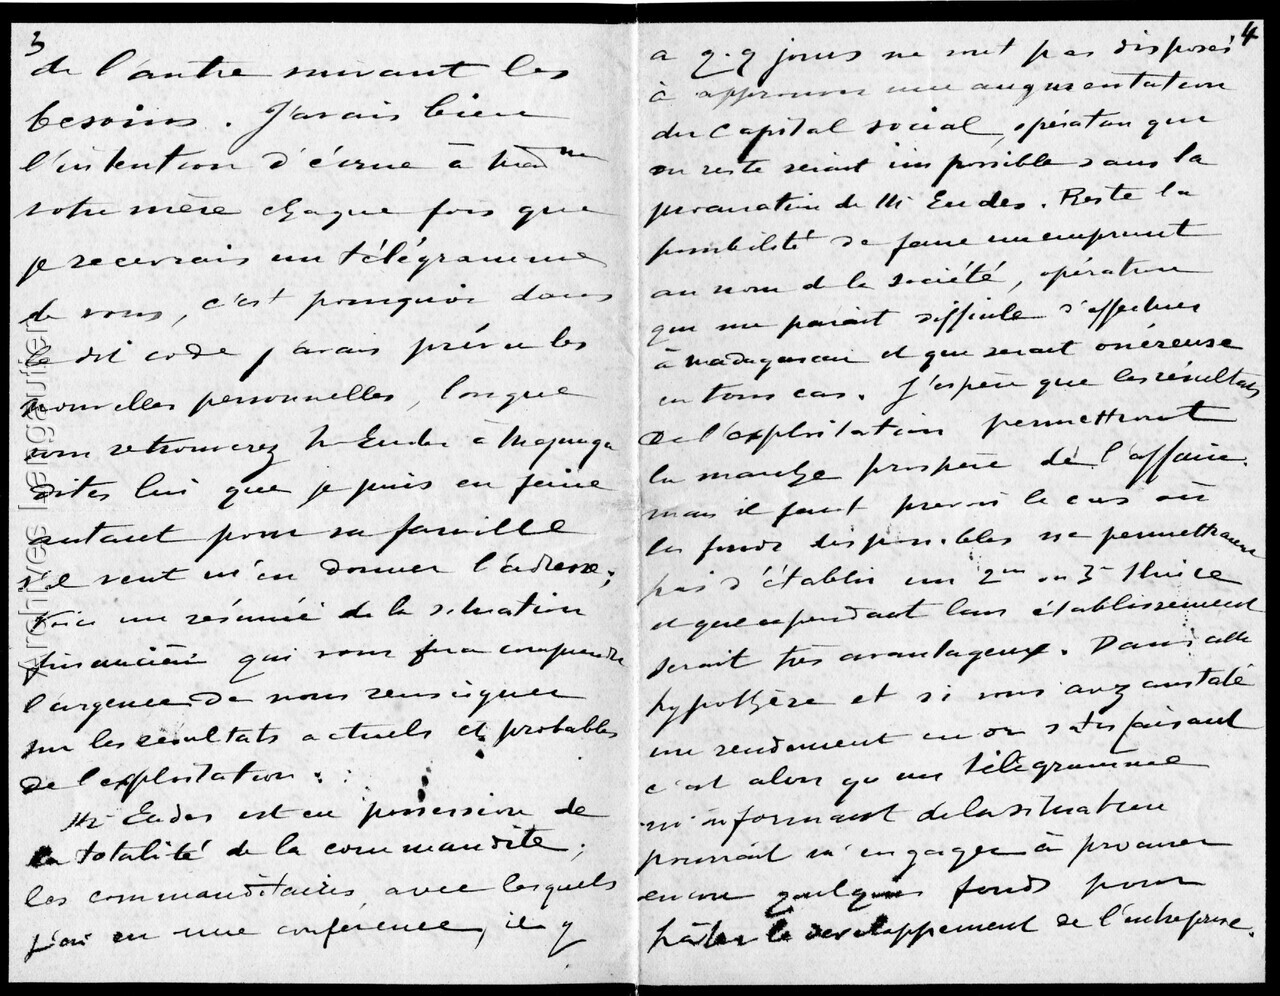 3
de l'autre suivant les
besoins. J'avais bien
l'intention d'écrire à Mad me
votre mère chaque fois que
je recevrais un télégramme
de vous, c'est pourquoi dans
le dit code j'avais prévu les
nouvelles personnelles, lorsque
vous retrouverez Mr Eudes à Majunga
dites lui que je puis en faire
autant pour sa famille
s'il veut m'en donner l'adresse;
Voici un résumé de la situation
financière qui vous fera comprendre
l'urgence de nous renseigner
sur les résultats actuels et probables
de l'exploitation.
Mr Eudes est en possession de
la totalité de la commandite;
les commanditaires avec lesquels
j'ai eu une conférence, il y
4
a q.q jours ne sont pas disposés
à approuver une augmentation
du Capital social, opération qui
du reste serait impossible sans la
procuration de Mr Eudes. Reste la
possibilité de faire un emprunt
au nom de la société, opération
qui me parait difficile d'effectuer
à Madagascar et qui serait onéreuse
en tous cas. J'espère que les résultats
de l'exploitation permettront
la marche prospère de l'affaire.
mais il faut prévoir le cas où
les fonds disponibles ne permettraient
pas d'établir un 2me ou 3me Sluice
et que cependant leur établissement
serait très avantageux. Dans cette
hypothèse et si vous avez constaté
un rendement en or satisfaisant
c'est alors qu'un télégramme
m'informant de la situation
pourrait m'engager à procurer
encore quelques fonds pour
hâter le développement de l'entreprise.
Archives Jangeaujien